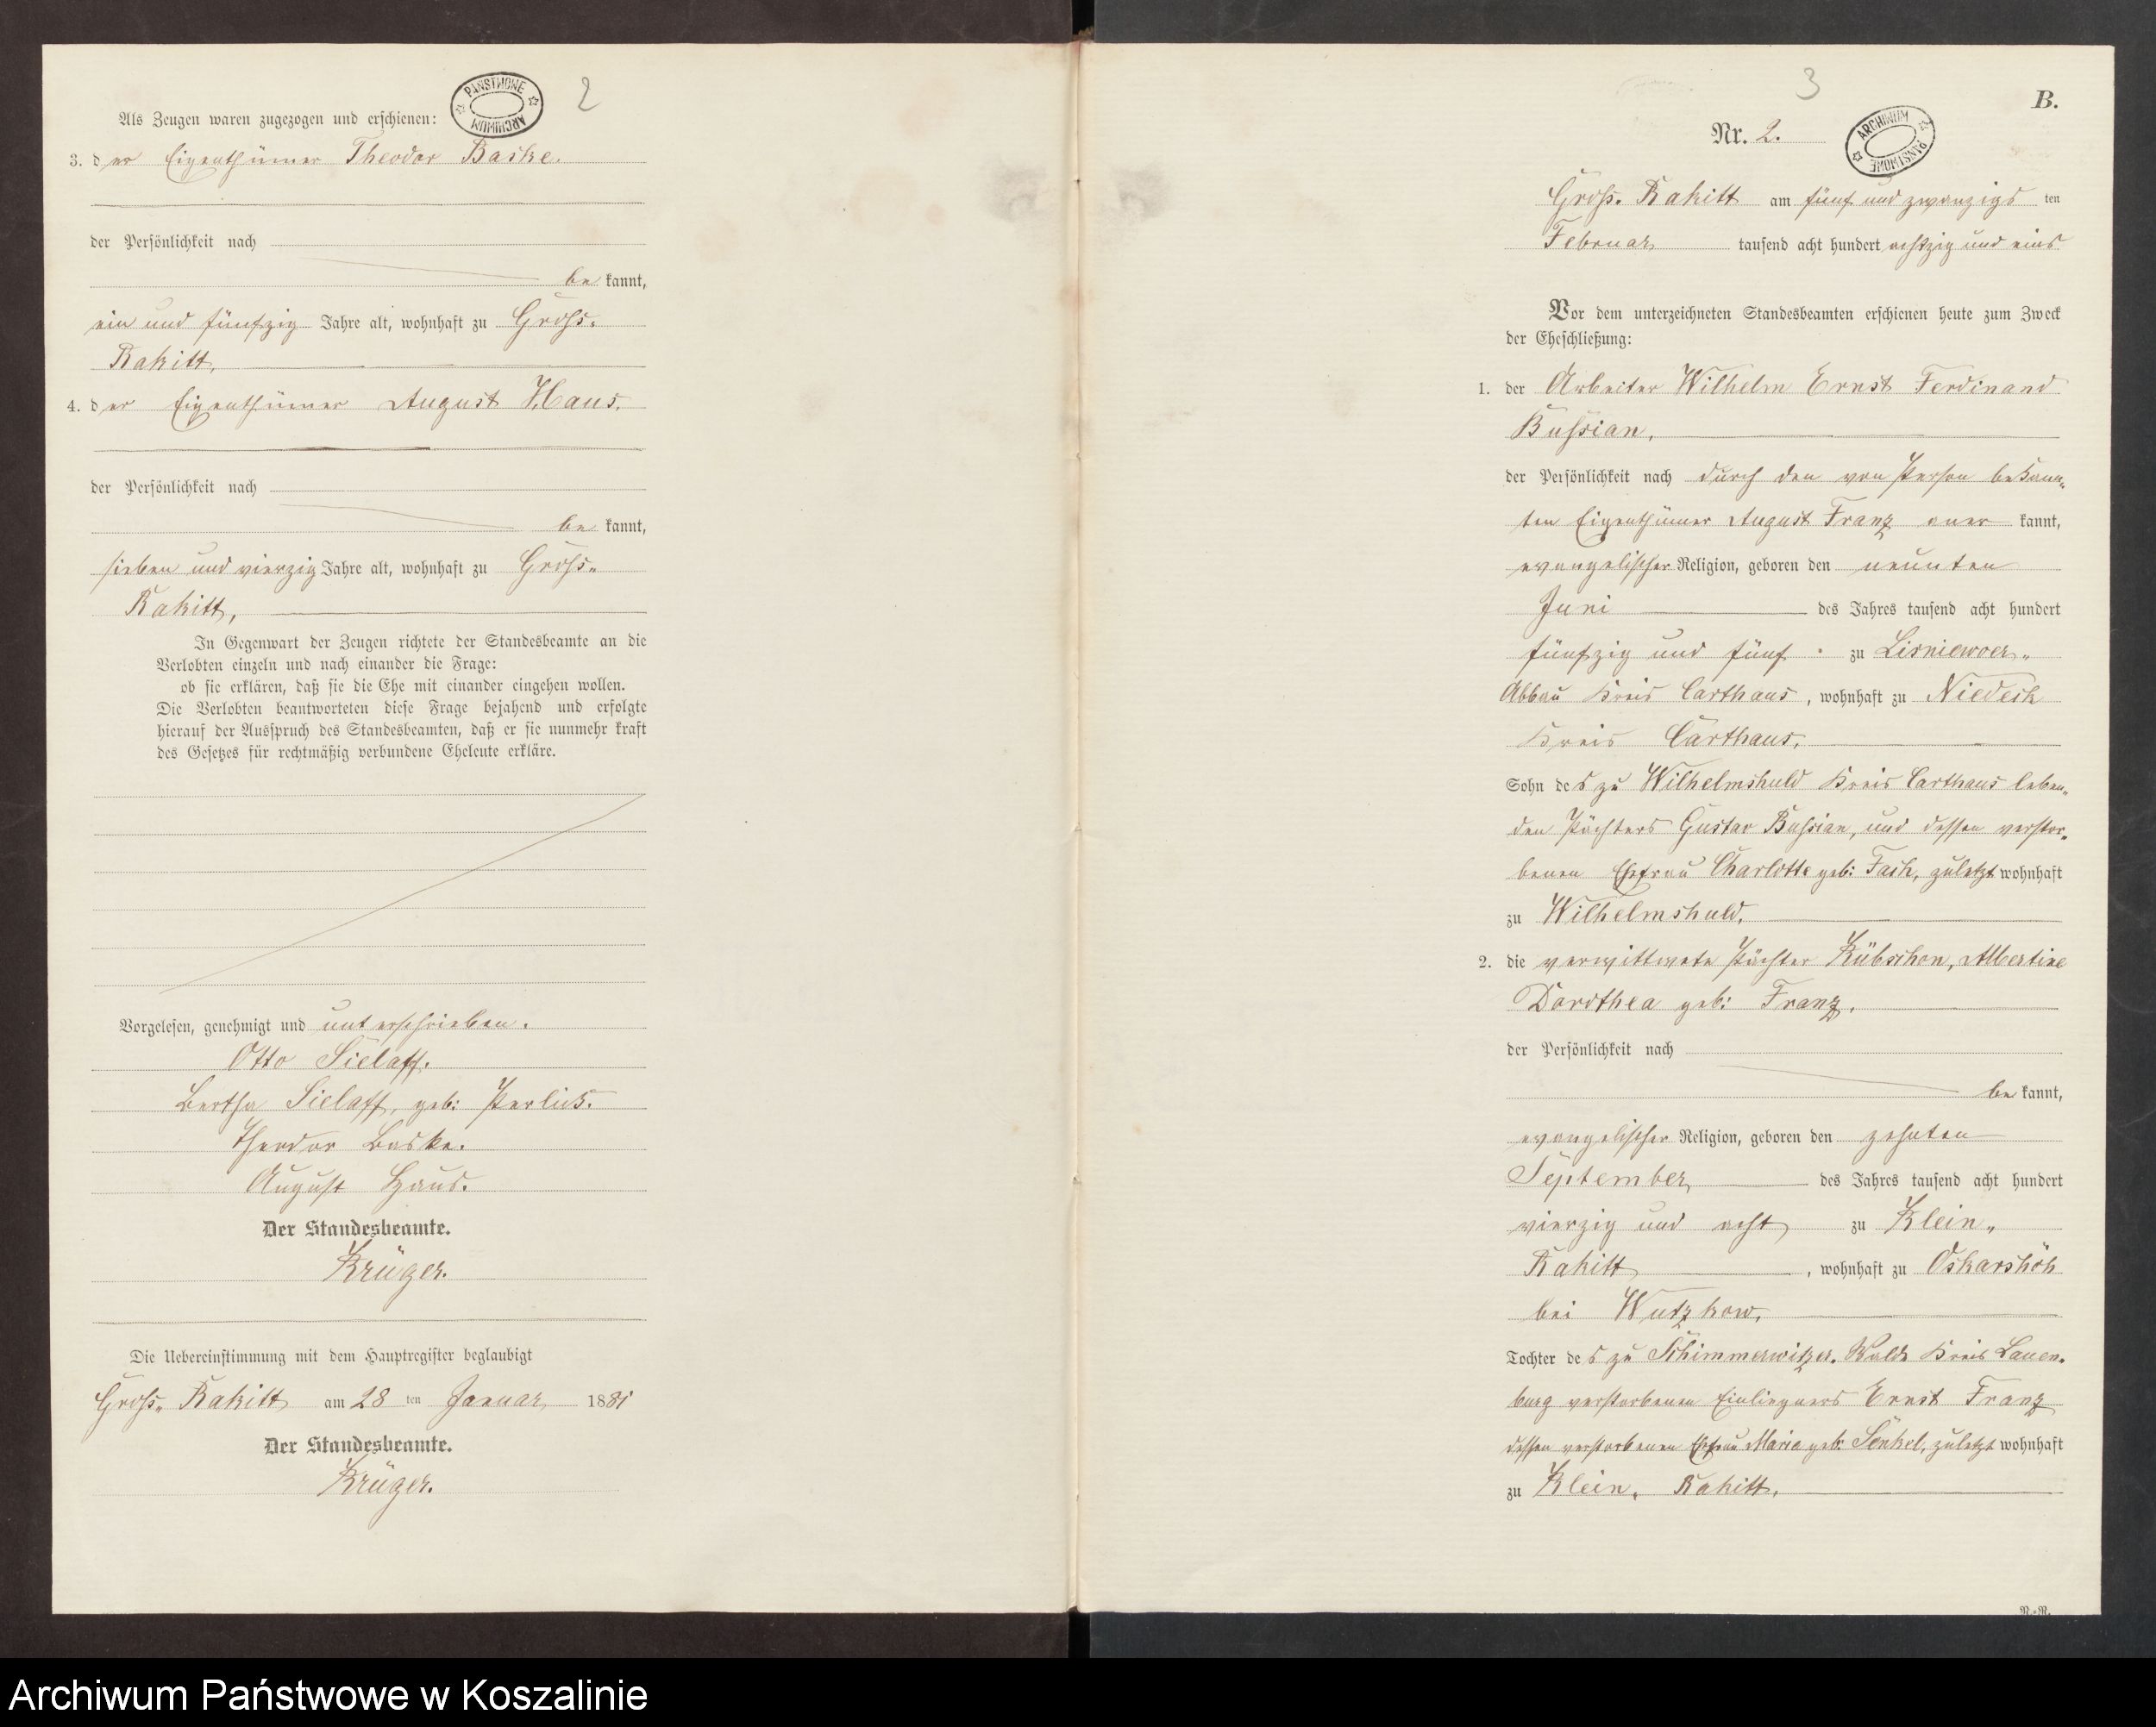 2
PAŃSTWOWE ARCHIWUM
Als Zeugen waren zugezogen und erschienen:
3. der Eigenthümer Theodor Baske.
der Persönlichkeit nach
be kannt,
ein und fünfzig Jahre alt, wohnhaft zu Groß-
Rakitt,
4. der Eigenthümer August Haus.
der Persönlichkeit nach
be kannt,
sieben und vierzig Jahre alt, wohnhaft zu Groß-
Rakitt,
In Gegenwart der Zeugen richtete der Standesbeamte an die
Verlobten einzeln und nach einander die Frage:
ob sie erklären, daß sie die Ehe mit einander eingehen wollen.
Die Verlobten beantworteten diese Frage bejahend und erfolgte
hierauf der Ausspruch des Standesbeamten, daß er sie nunmehr kraft
des Gesetzes für rechtmäßig verbundene Eheleute erkläre.
Vorgelesen, genehmigt und unterschrieben.
Otto Sielaff.
Bertha Sielaff, geb: Perlick.
Theodor Baske.
August Haus.
Der Standesbeamte.
Krüger.
Die Uebereinstimmung mit dem Hauptregister beglaubigt
Groß-Rakitt am 28 ten Januar 1881
Der Standesbeamte.
Krüger.
3
B.
Nr. 2.
ARCHIWUM PAŃSTWOWE
Groß-Rakitt am fünf und zwanzigs ten
Februar tausend acht hundert achtzig und eins
Vor dem unterzeichneten Standesbeamten erschienen heute zum Zweck
der Eheschließung:
1. der Arbeiter Wilhelm Ernst Ferdinand
Bußian,
der Persönlichkeit nach durch den von Person bekann-
ten Eigenthümer August Franz aner kannt,
evangelischer Religion, geboren den neunten
Juni des Jahres tausend acht hundert
fünfzig und fünf zu Lisniewoer-
Abbau Kreis Carthaus, wohnhaft zu Niedeck
Kreis Carthaus,
Sohn des zu Wilhelmshuld Kreis Carthaus leben-
den Pächters Gustav Bußian, und dessen verstor-
benen Ehefrau Charlotte geb: Task, zuletzt wohnhaft
zu Wilhelmshuld.
2. die verwittwete Pächter Kübschen, Albertine
Dorothea geb: Franz,
der Persönlichkeit nach
be kannt,
evangelischer Religion, geboren den zehnten
September des Jahres tausend acht hundert
vierzig und acht zu Klein-
Rakitt, wohnhaft zu Oskarshöh
bei Wutzkow,
Tochter des zu Schimmerwitzer-Wald Kreis Lauen-
burg verstorbenen Einliegners Ernst Franz
dessen verstorbenen Ehefrau Maria geb: Senkel, zuletzt wohnhaft
zu Klein-Rakitt.
Archiwum Państwowe w Koszalinie